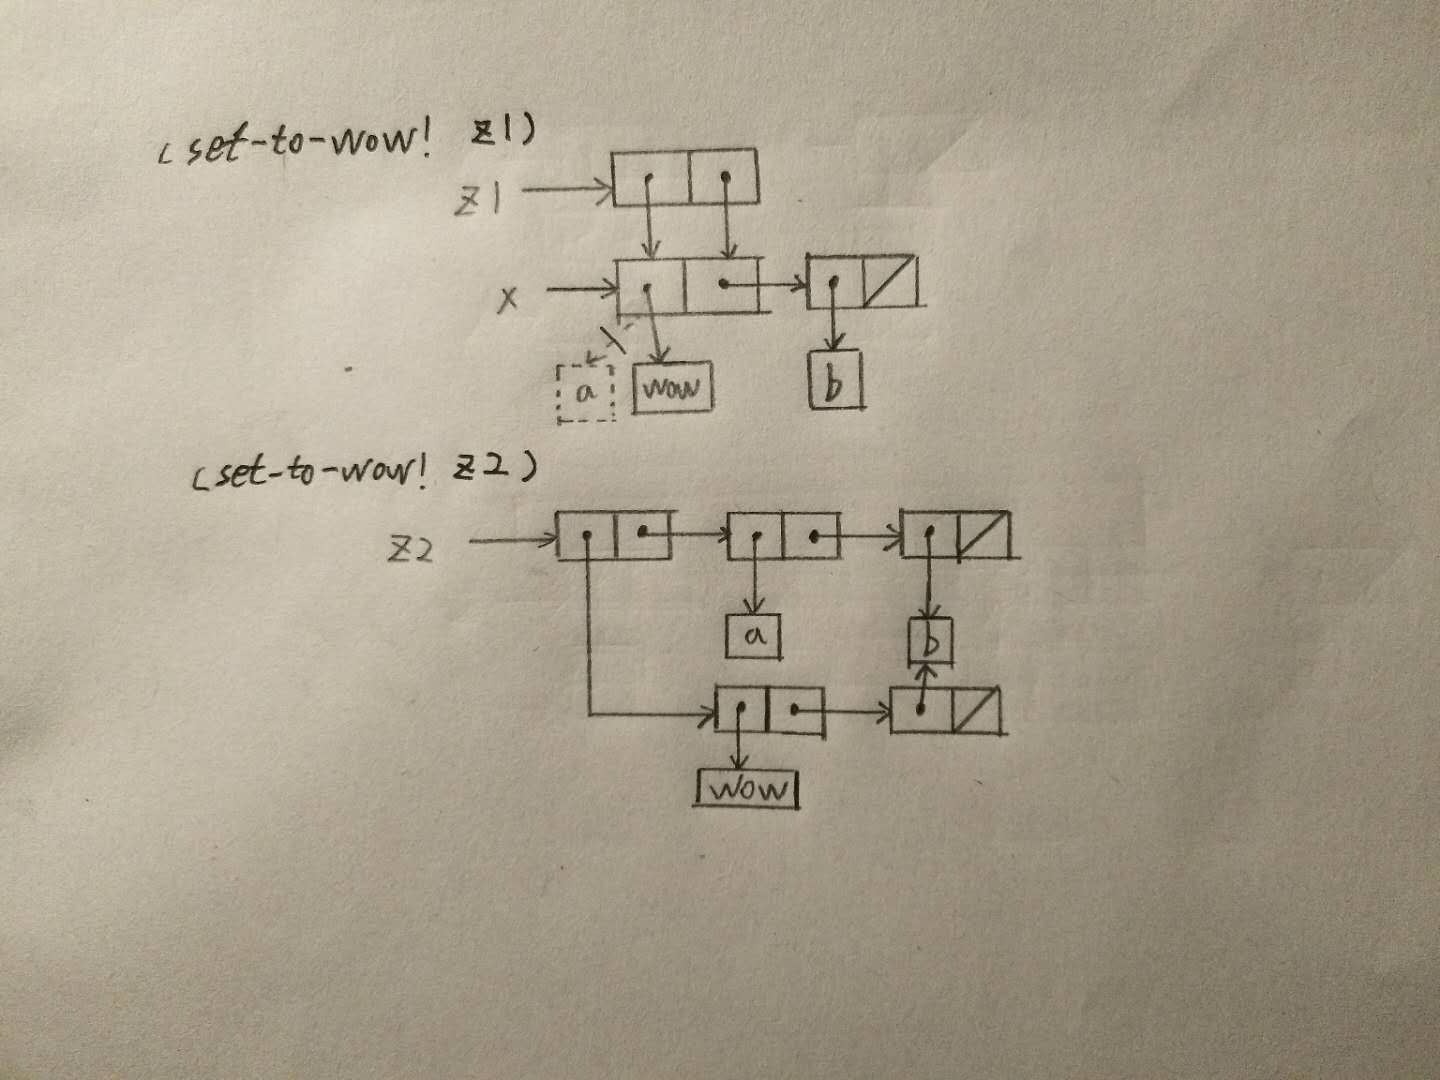 (set-to-wow! z1)
z1
x
a wow b
(set-to-wow! z2)
z2
a b
wow